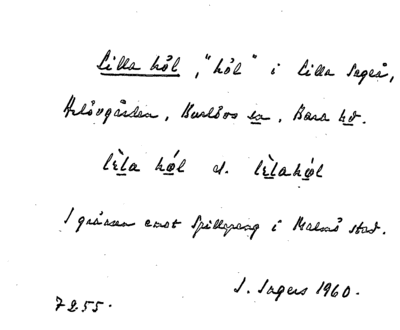 Lilla hôl, "hôl" i Lilla Segeå,
Arlövgården, Burlövs sn, Bara hd.
lèla hol d. lèlahol
I gränsen mot Spillepeng i Malmö stad.
S. Sagers 1960.
7255.